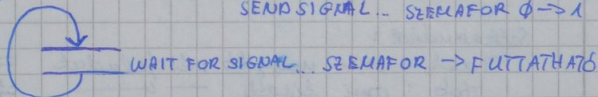 SEND SIGNAL... SZEMAFOR 0 -> 1
WAIT FOR SIGNAL... SZEMAFOR -> FUTTATHATÓ